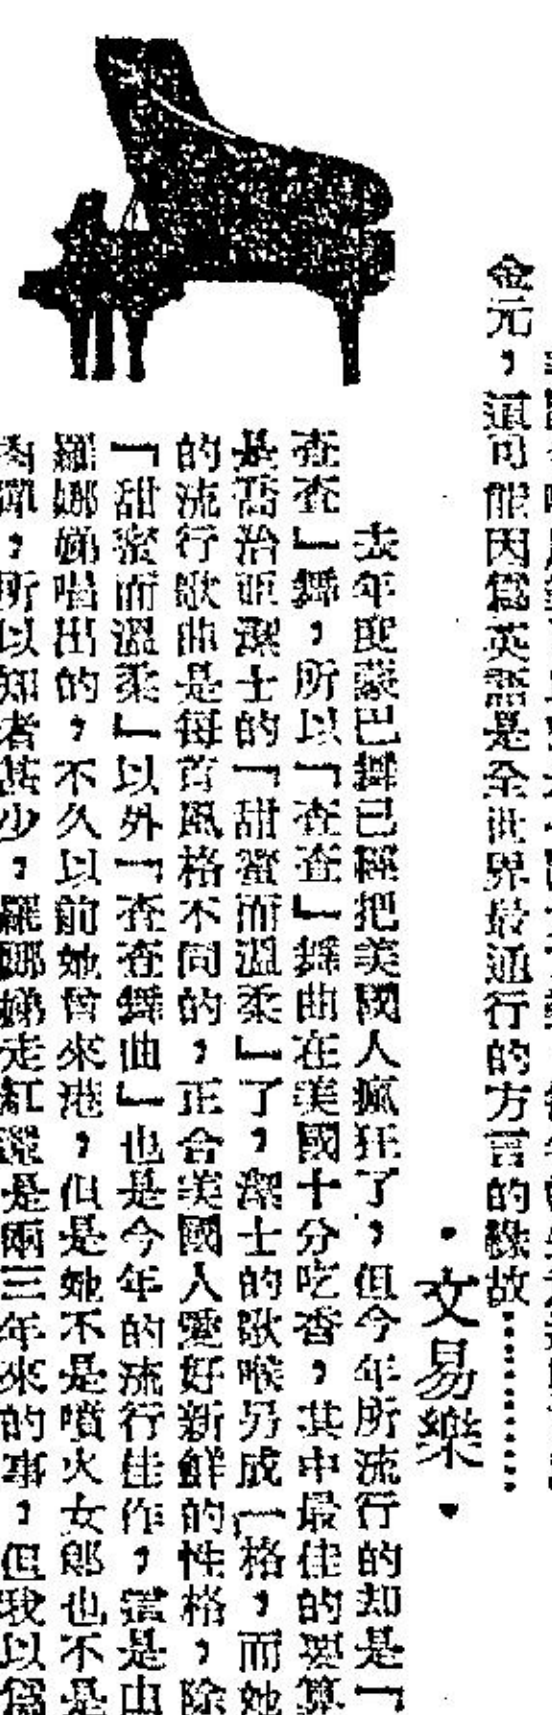 金元，這可能因爲英語是全世界最通行的方言的緣故………
•文易樂•
去年度蒙巴舞已經把美國人瘋狂了，但今年所流行的却是「
查查」舞，所以「查查」舞曲在美國十分吃香，其中最佳的要算
是喬治亞潔士的「甜蜜而溫柔」了，潔士的歌喉另成一格，而她
的流行歌曲是每首風格不同的，正合美國人愛好新鮮的性格，除
「甜蜜而溫柔」以外「查查舞曲」也是今年的流行佳作，這是由
羅娜娣唱出的，不久以前她曾來港，但是她不是噴火女郎也不是
肉彈，所以知者甚少，羅娜娣走紅還是兩三年來的事，但我以爲